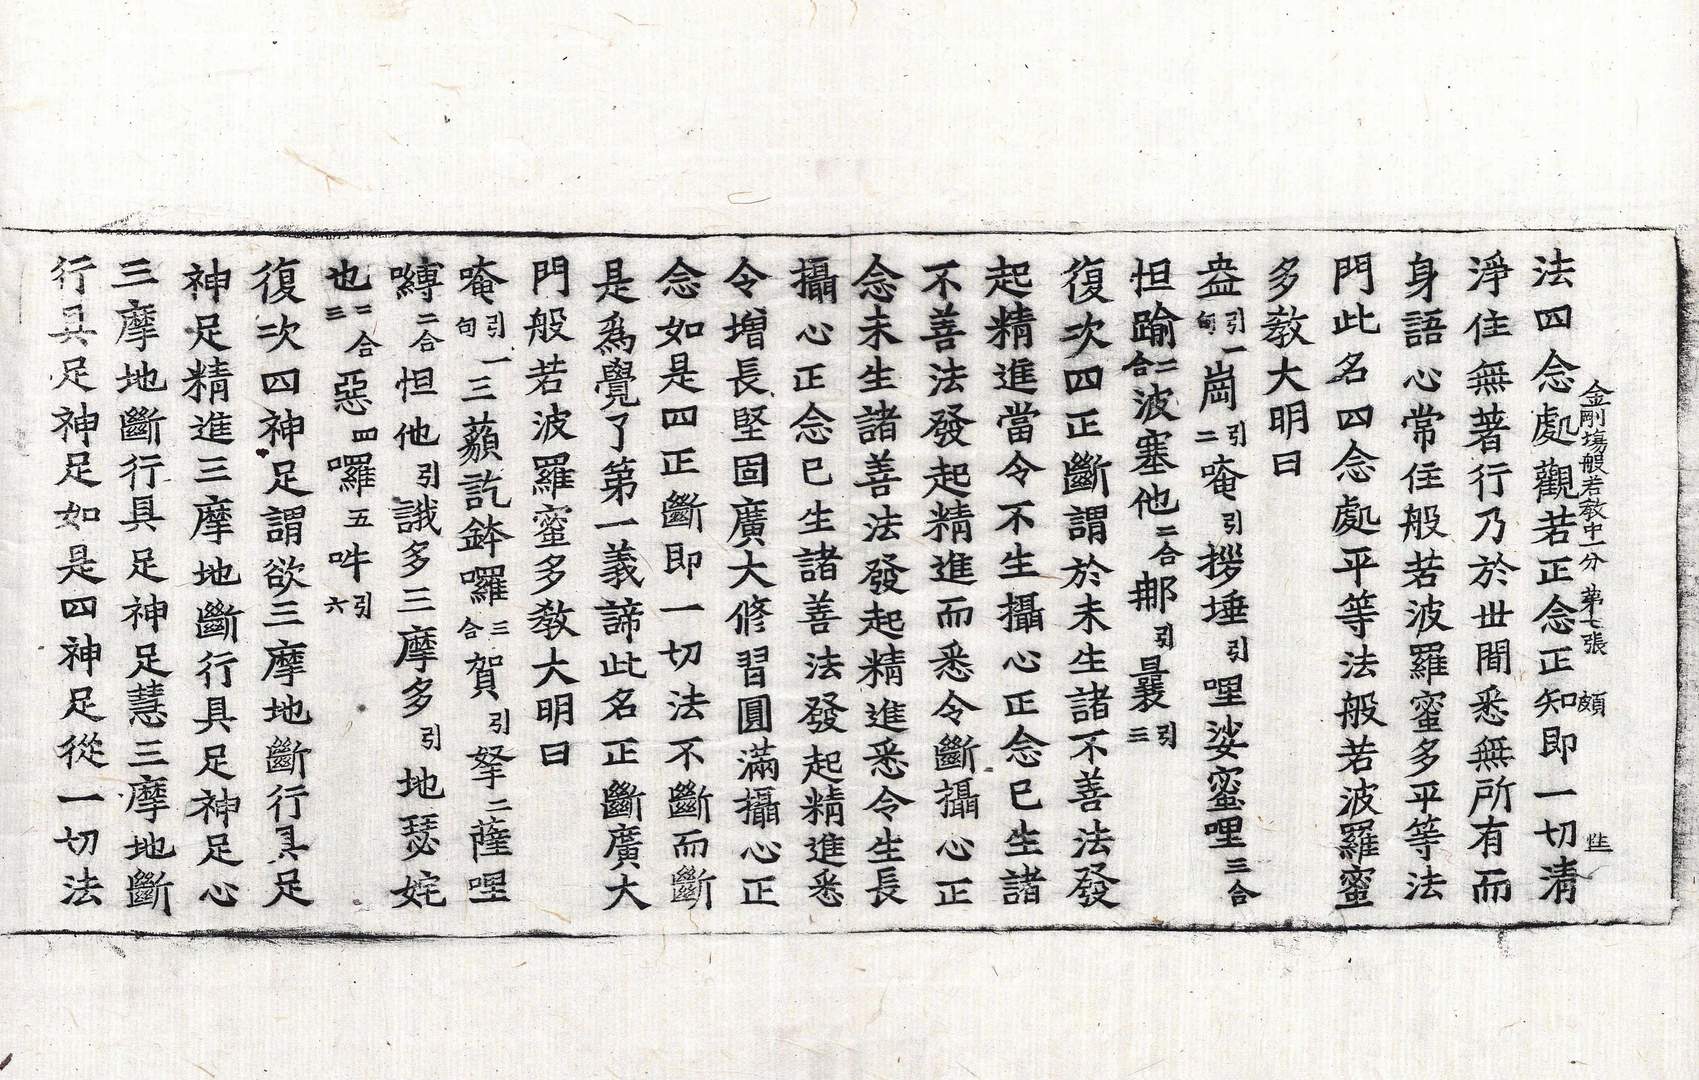 金剛場般若敎中一分 第七張 頗
法四念處觀若正念正知即一切清
淨住無著行乃於世間悉無所有而
身語心常住般若波羅蜜多平等法
門此名四念處平等法般若波羅蜜
多敎大明曰
盎引一句崗引二唵引拶埵引哩娑蜜哩三合
怛踰二合波塞他二合那引曩引三
復次四正斷謂於未生諸不善法發
起精進當令不生攝心正念已生諸
不善法發起精進而悉令斷攝心正
念未生諸善法發起精進悉令生長
攝心正念已生諸善法發起精進悉
令增長堅固廣大修習圓滿攝心正
念如是四正斷即一切法不斷而斷
是爲覺了第一義諦此名正斷廣大
門般若波羅蜜多敎大明曰
唵引一句三藐訖鉢囉三合賀引拏二薩哩
嚩二合怛他引誐多三摩多引地瑟姹
也二合三惡四囉五吽引六
復次四神足謂欲三摩地斷行具足
神足精進三摩地斷行具足神足心
三摩地斷行具足神足慧三摩地斷
行具足神足如是四神足從一切法